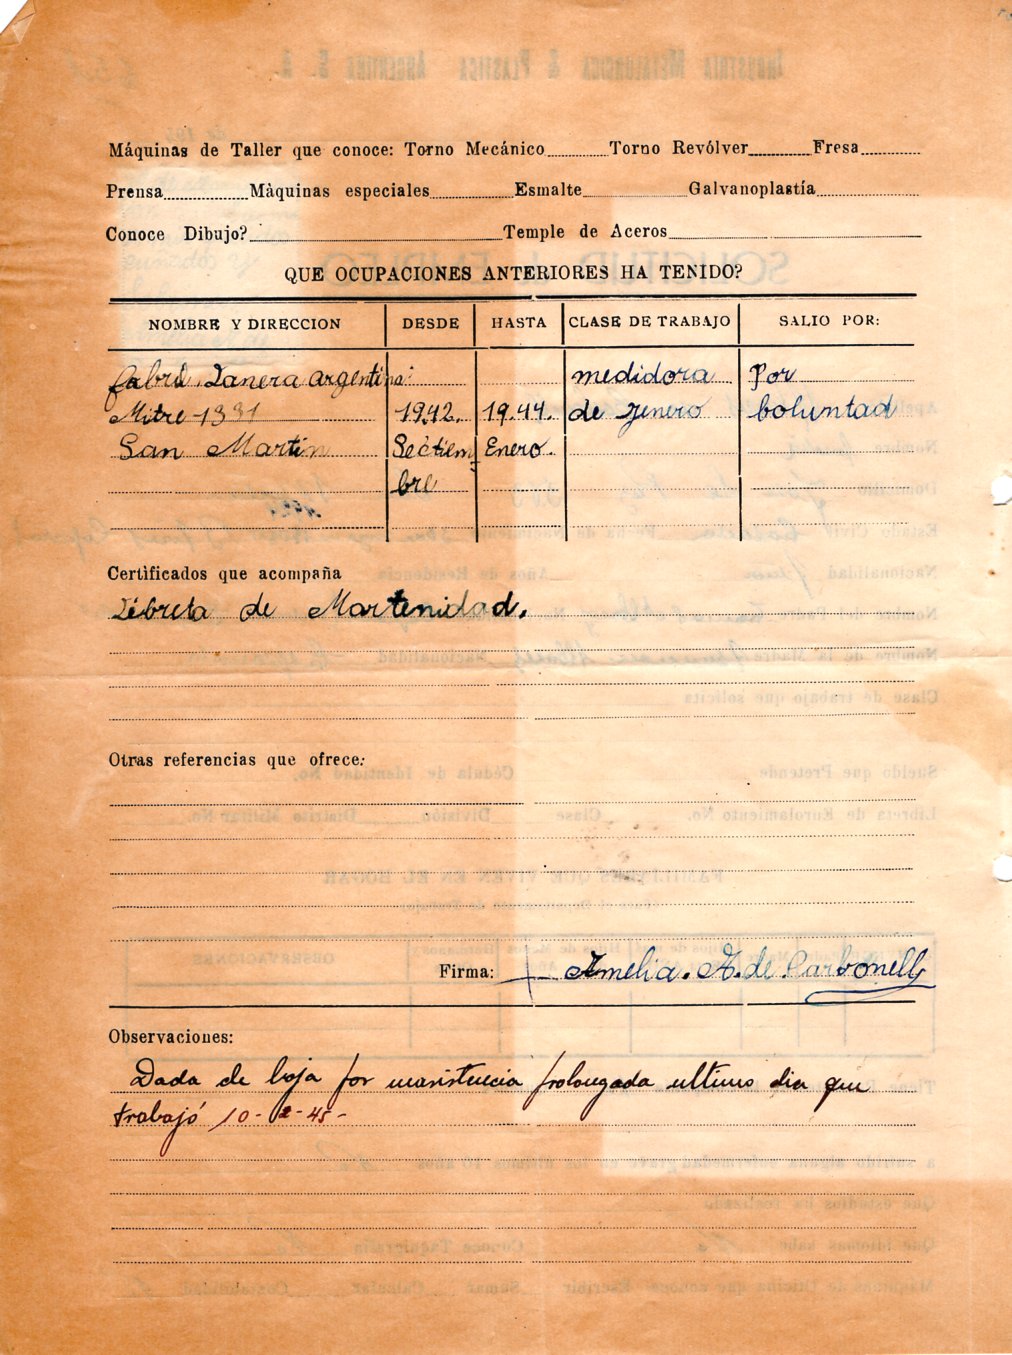 Máquinas de Taller que conoce: Torno Mecánico Torno Revólver Fresa
Prensa Màquinas especiales Esmalte Galvanoplastía
Conoce Dibujo? Temple de Aceros
QUE OCUPACIONES ANTERIORES HA TENIDO?
NOMBRE Y DIRECCION DESDE HASTA CLASE DE TRABAJO SALIO POR:
Lanera argentina medidora Por
Mitre 1331 1942. 1944. de jenero boluntad
San Martin Sectiem Enero.
bre
Certificados que acompaña
Libreta de Martenidad.
Otras referencias que ofrece:
Firma: Amelia. A. de. Carbonell
Observaciones:
Dada de baja por inasistencia prolongada ultimo dia que
trabajó 10-2-45-